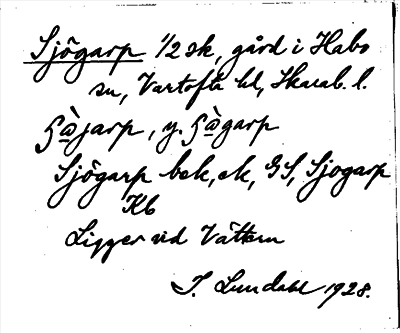 Sjögarp 1/2 sk, gård i Habo
sn, Vartofta hd, Skarab. l.
jarp, y. garp
Sjögarp bek, ek, GS, Sjogarp
Kb
Ligger vid Vättern
I. Lundahl 1928.